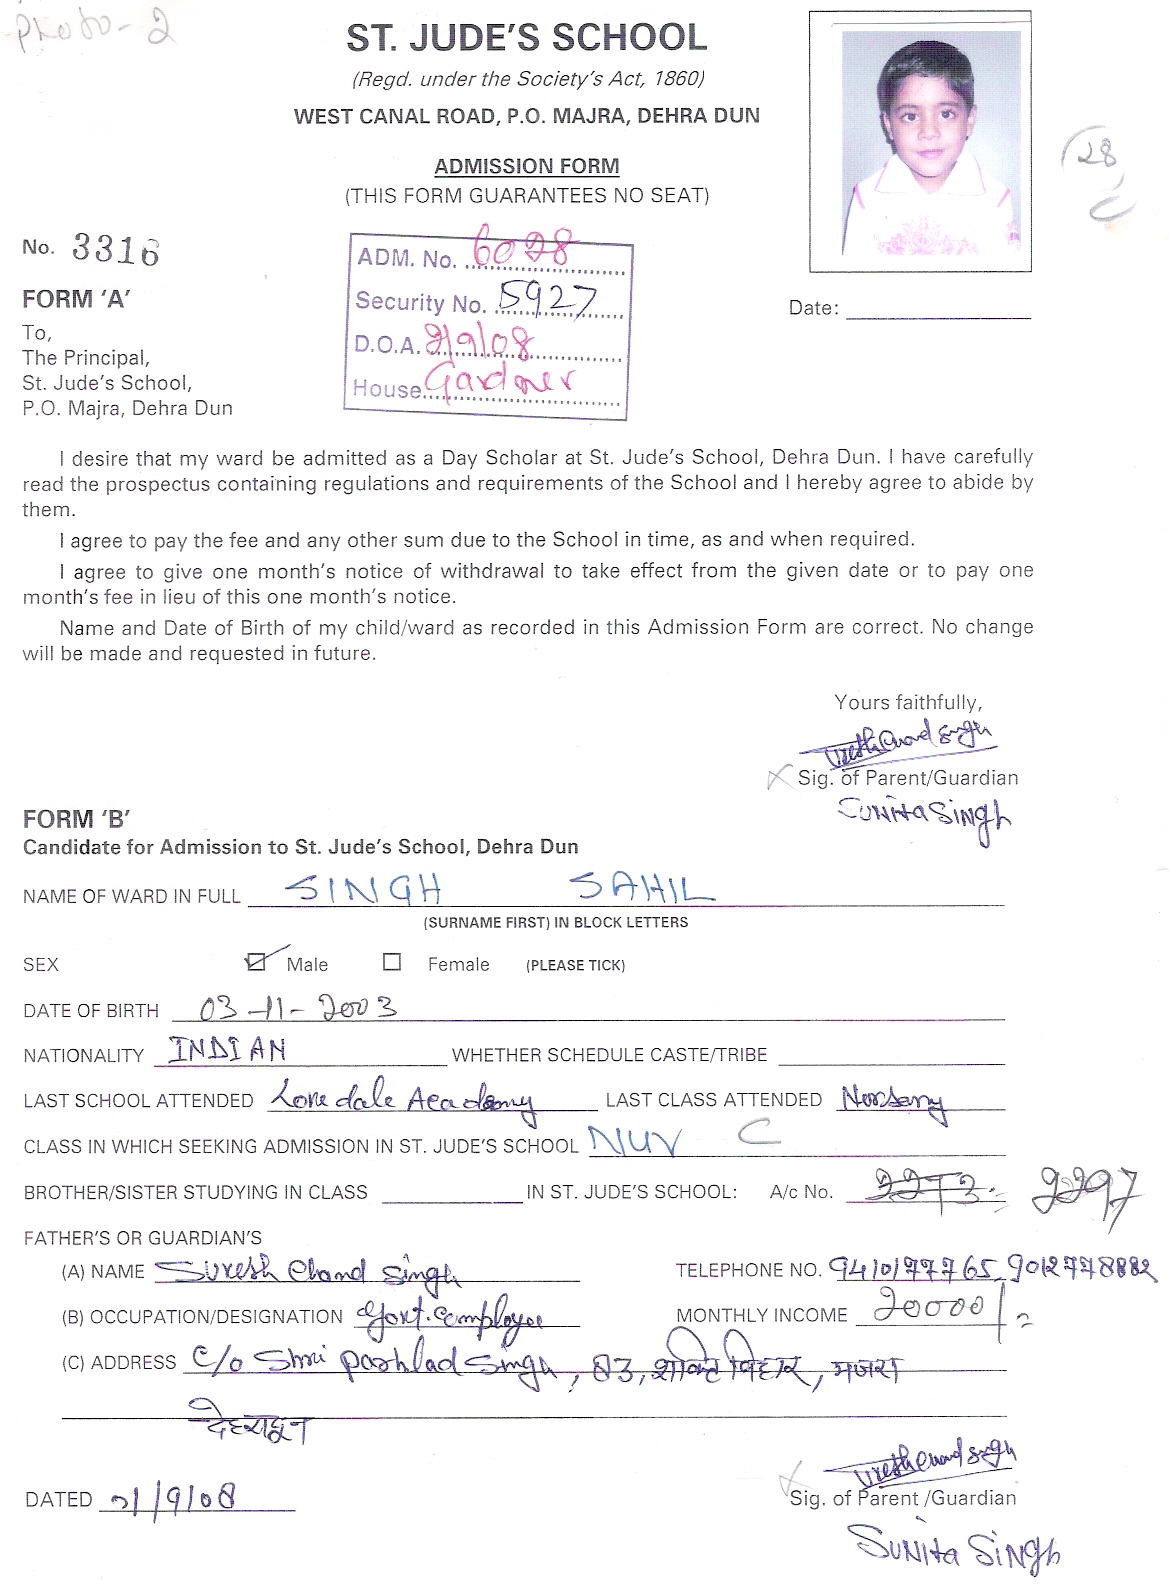 Photo-2
ST. JUDE'S SCHOOL
(Regd. under the Society's Act, 1860)
WEST CANAL ROAD, P.O. MAJRA, DEHRA DUN
ADMISSION FORM
(THIS FORM GUARANTEES NO SEAT)
28
C
No. 3316
ADM. No. 6028
Security No. 5927
D.O.A. 2/9/08
House Gardner
Date:
FORM 'A'
To,
The Principal,
St. Jude's School,
P.O. Majra, Dehra Dun
I desire that my ward be admitted as a Day Scholar at St. Jude's School, Dehra Dun. I have carefully
read the prospectus containing regulations and requirements of the School and I hereby agree to abide by
them.
I agree to pay the fee and any other sum due to the School in time, as and when required.
I agree to give one month's notice of withdrawal to take effect from the given date or to pay one
month's fee in lieu of this one month's notice.
Name and Date of Birth of my child/ward as recorded in this Admission Form are correct. No change
will be made and requested in future.
Yours faithfully,
Suresh Chand Singh
Sig. of Parent/Guardian
Sunita Singh
FORM 'B'
Candidate for Admission to St. Jude's School, Dehra Dun
NAME OF WARD IN FULL SINGH SAHIL
(SURNAME FIRST) IN BLOCK LETTERS
SEX Male Female (PLEASE TICK)
DATE OF BIRTH 03-11-2003
NATIONALITY INDIAN WHETHER SCHEDULE CASTE/TRIBE
LAST SCHOOL ATTENDED Lonedale Academy LAST CLASS ATTENDED Nursery
CLASS IN WHICH SEEKING ADMISSION IN ST. JUDE'S SCHOOL NUR C
BROTHER/SISTER STUDYING IN CLASS IN ST. JUDE'S SCHOOL: A/c No. 2297
FATHER'S OR GUARDIAN'S
(A) NAME Suresh Chand Singh TELEPHONE NO. 9410177765
(B) OCCUPATION/DESIGNATION Govt. employee MONTHLY INCOME 20000/=
(C) ADDRESS C/o Shri Parhlad Singh, 83, शक्ति विहार, मजरा
देहरादून
Suresh Chand Singh
DATED 2/9/08 Sig. of Parent /Guardian
Sunita Singh